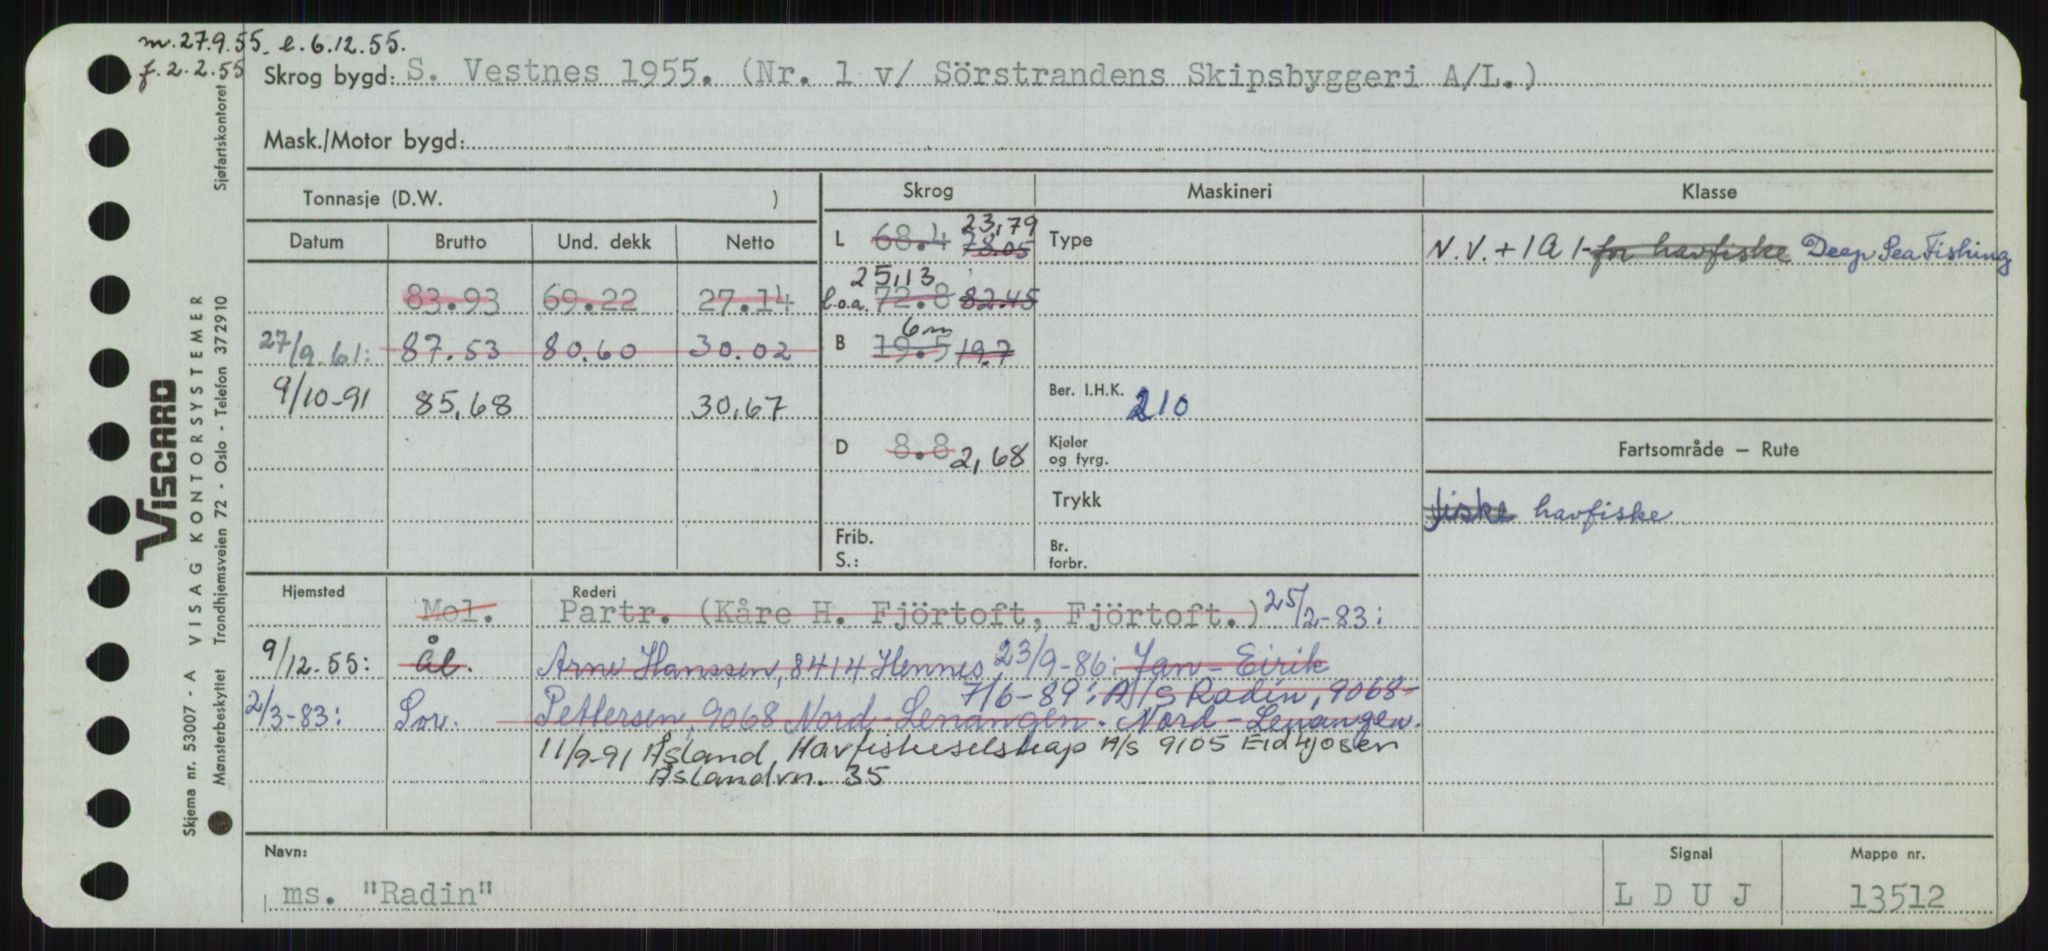 m. 27.9.55. e. 6.12.55.
f. 2.2.55
Skrog bygd: S. Vestnes 1955. (Nr. 1 v/ Sörstrandens Skipsbyggeri A/L.)
Mask./Motor bygd:
Tonnasje (D.W. )
Skrog
Maskineri
Klasse
Datum Brutto Und. dekk Netto
L 68.4 78.05 23,79
Type
N.V. + 1A1- for havfiske Deep Sea Fishing
83.93 69.22 27.14
l.o.a. 72.8 82.45 25,13
27/9 61: 87.53 80.60 30.02
B 19.5 19.7 6m
9/10-91 85,68 30,67
Ber. I.H.K. 210
D 8.8 2,68
Kjeler
og fyrg.
Fartsområde – Rute
Trykk
fiske havfiske
Frib.
S.:
Br.
forbr.
Hjemsted
Rederi
Mol. Partr. (Kåre H. Fjörtoft, Fjörtoft.) 25/2-83:
9/12-55: Ål. Arne Hanssen, 8414 Hennes 23/9-86: Jan-Eirik
7/6-89: A/S Radin, 9068-
2/3-83: Sor. Pettersen, 9068 Nord-Lenangen. Nord-Lenangen.
11/9-91 Åsland Havfiskeselskap A/S 9105 Eidkjosen
Åslandvn. 35
Navn:
ms. "Radin"
Signal
L D U J
Mappe nr.
13512
Sjøfartskontoret
VISCARD
VISAG KONTORSYSTEMER
Trondhjemsveien 72 - Oslo - Telefon 372910
Skjema nr. 53007 - A
Mønsterbeskyttet